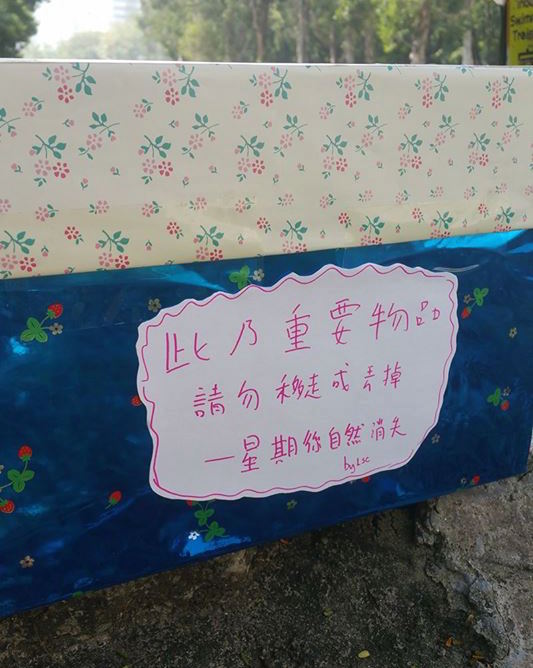 此乃重要物品
請勿移走或丟掉
一星期後自然消失
by Lsc